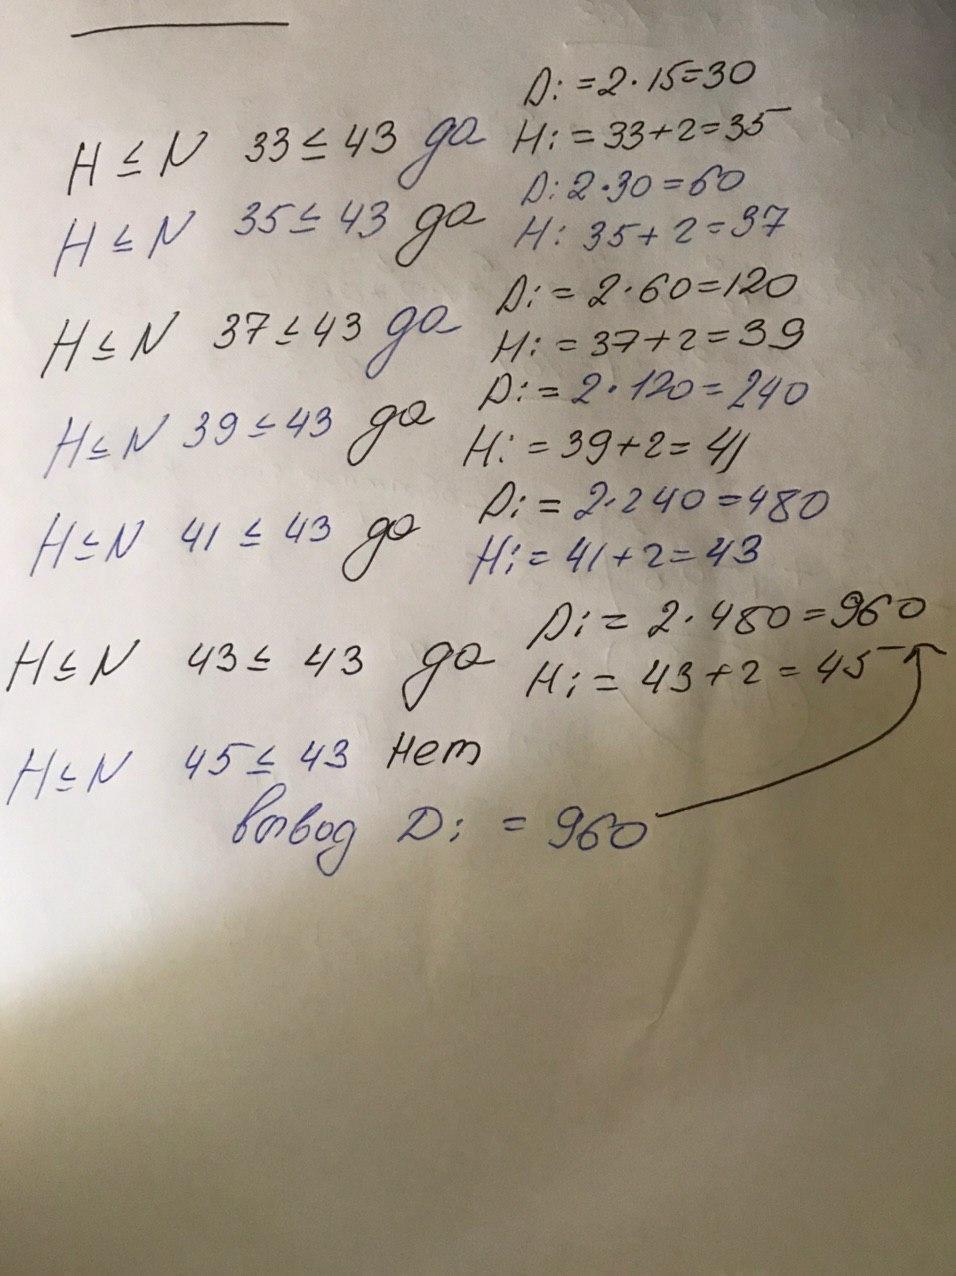 D:=2·15=30
H≤N 33≤43 да H:=33+2=35
D:2·30=60
H≤N 35≤43 да H: 35+2=37
D:=2·60=120
H≤N 37≤43 да H:=37+2=39
D:=2·120=240
H≤N 39≤43 да H:=39+2=41
D:=2·240=480
H≤N 41≤43 да H:=41+2=43
D:=2·480=960
H≤N 43≤43 да H:=43+2=45
H≤N 45≤43 нет
вывод D:=960